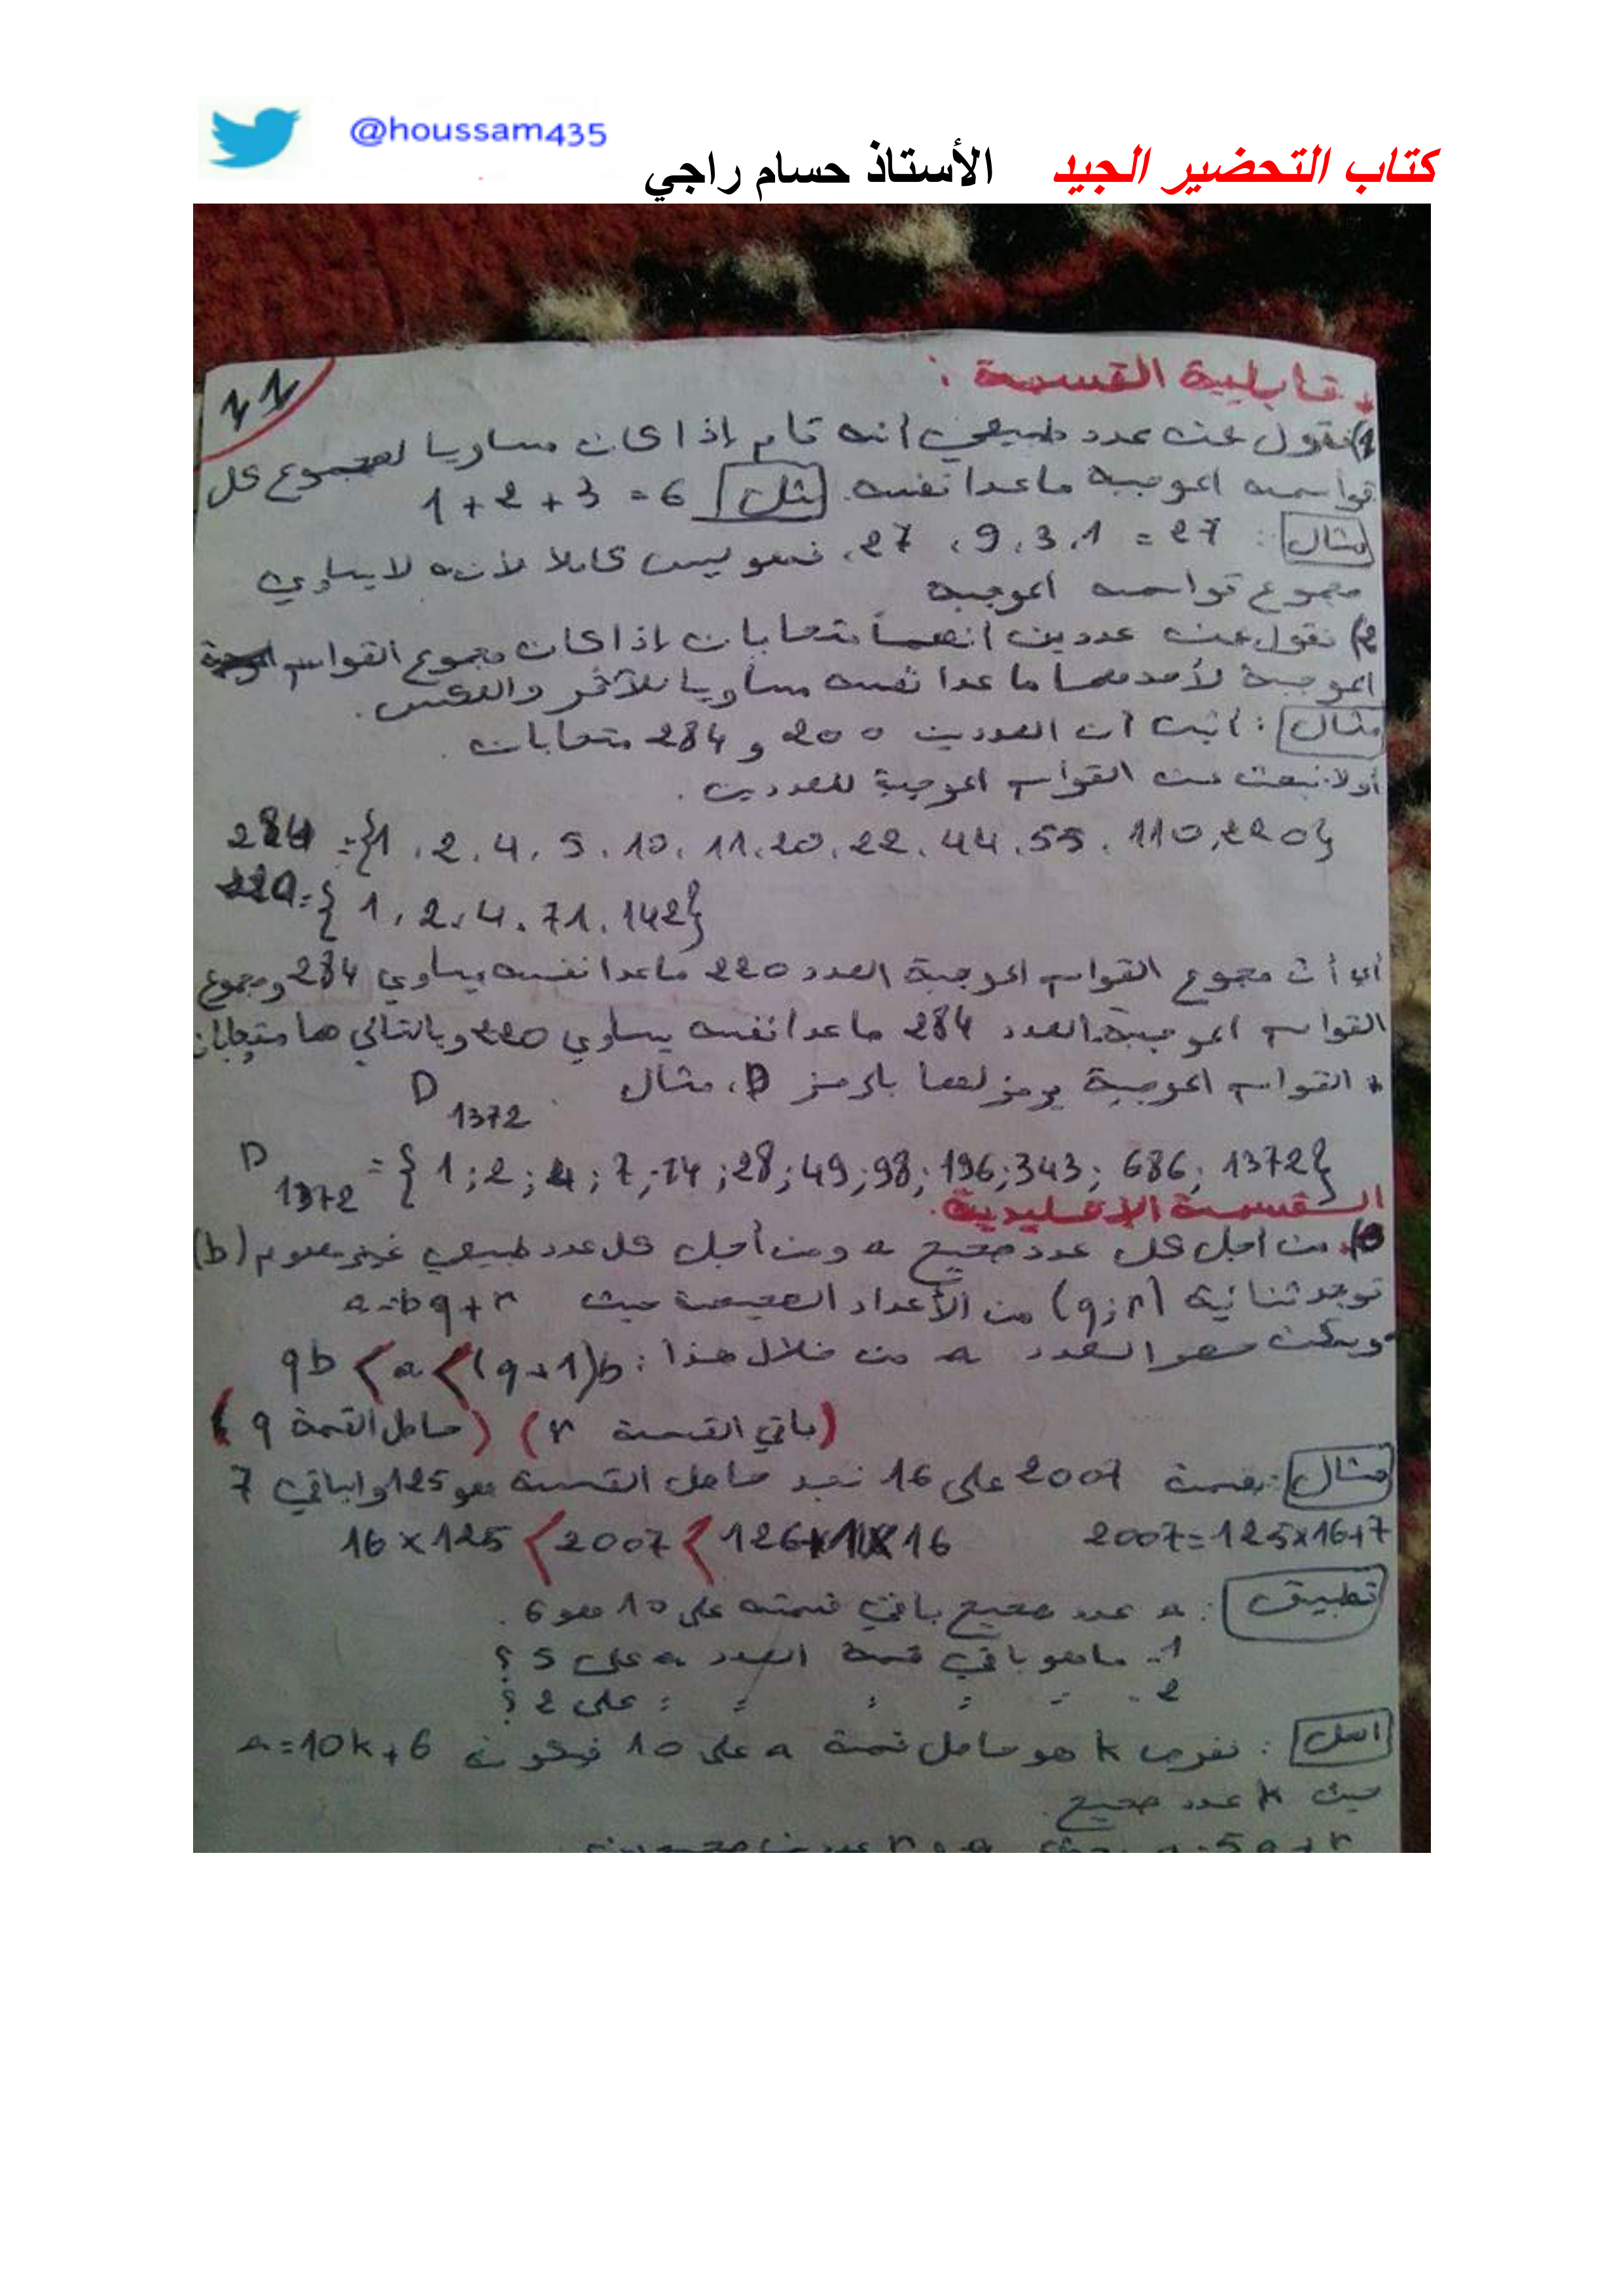 @houssam435
كتاب التحضير الجيد الأستاذ حسام راجي
11
* قابلية القسمة :
1) نقول عن عدد طبيعي أنه تام إذا كان مساويا لمجموع كل
قواسمه الموجبة ماعدا نفسه. مثل 6 = 3 + 2 + 1
مثال : 27 = 1، 3، 9، 27، فهو ليس كاملا لأنه لا يساوي
مجموع قواسمه الموجبة
2) نقول عن عددين أنهما متحابان إذا كان مجموع القواسم
الموجبة لأحدهما ما عدا نفسه مساويا للآخر والعكس.
مثال : أثبت أن العددين 200 و 284 متحابان.
أولا نبحث عن القواسم الموجبة للعددين.
284 = {1 . 2 . 4 . 5 . 10 . 11 . 20 . 22 . 44 . 55 . 110 , 220}
220 = { 1 , 2 , 4 . 71 . 142}
أي أن مجموع القواسم الموجبة العدد 220 ماعدا نفسه يساوي 284 ومجموع
القواسم الموجبة العدد 284 ماعدا نفسه يساوي 220 وبالتالي هما متحابان
* القواسم الموجبة يرمز لها بالرمز D، مثال D1372
D1372 = { 1 ; 2 ; 4 ; 7 ; 14 ; 28 ; 49 ; 98 ; 196 ; 343 ; 686 ; 1372}
القسمة الإقليدية.
من أجل كل عدد صحيح a ومن أجل كل عدد طبيعي غير معدوم (b)
توجد ثنائية (q ; r) من الأعداد الصحيحة حيث a = bq + r
ويمكن حصر العدد a من خلال هذا : qb < a < (q+1)b
(باقي القسمة r) (حاصل القسمة q)
مثال : بقسمة 2007 على 16 نجد حاصل القسمة هو 125 والباقي 7
2007 = 125 x 16 + 7 16 x 125 < 2007 < 126 x 16
تطبيق : a عدد صحيح باقي قسمته على 10 هو 6.
1 - ماهو باقي قسمة العدد a على 5 ؟
2 - = = = = = على 2 ؟
الحل : نفرض k هو حاصل قسمة a على 10 فيكون a = 10k + 6
حيث k عدد صحيح.